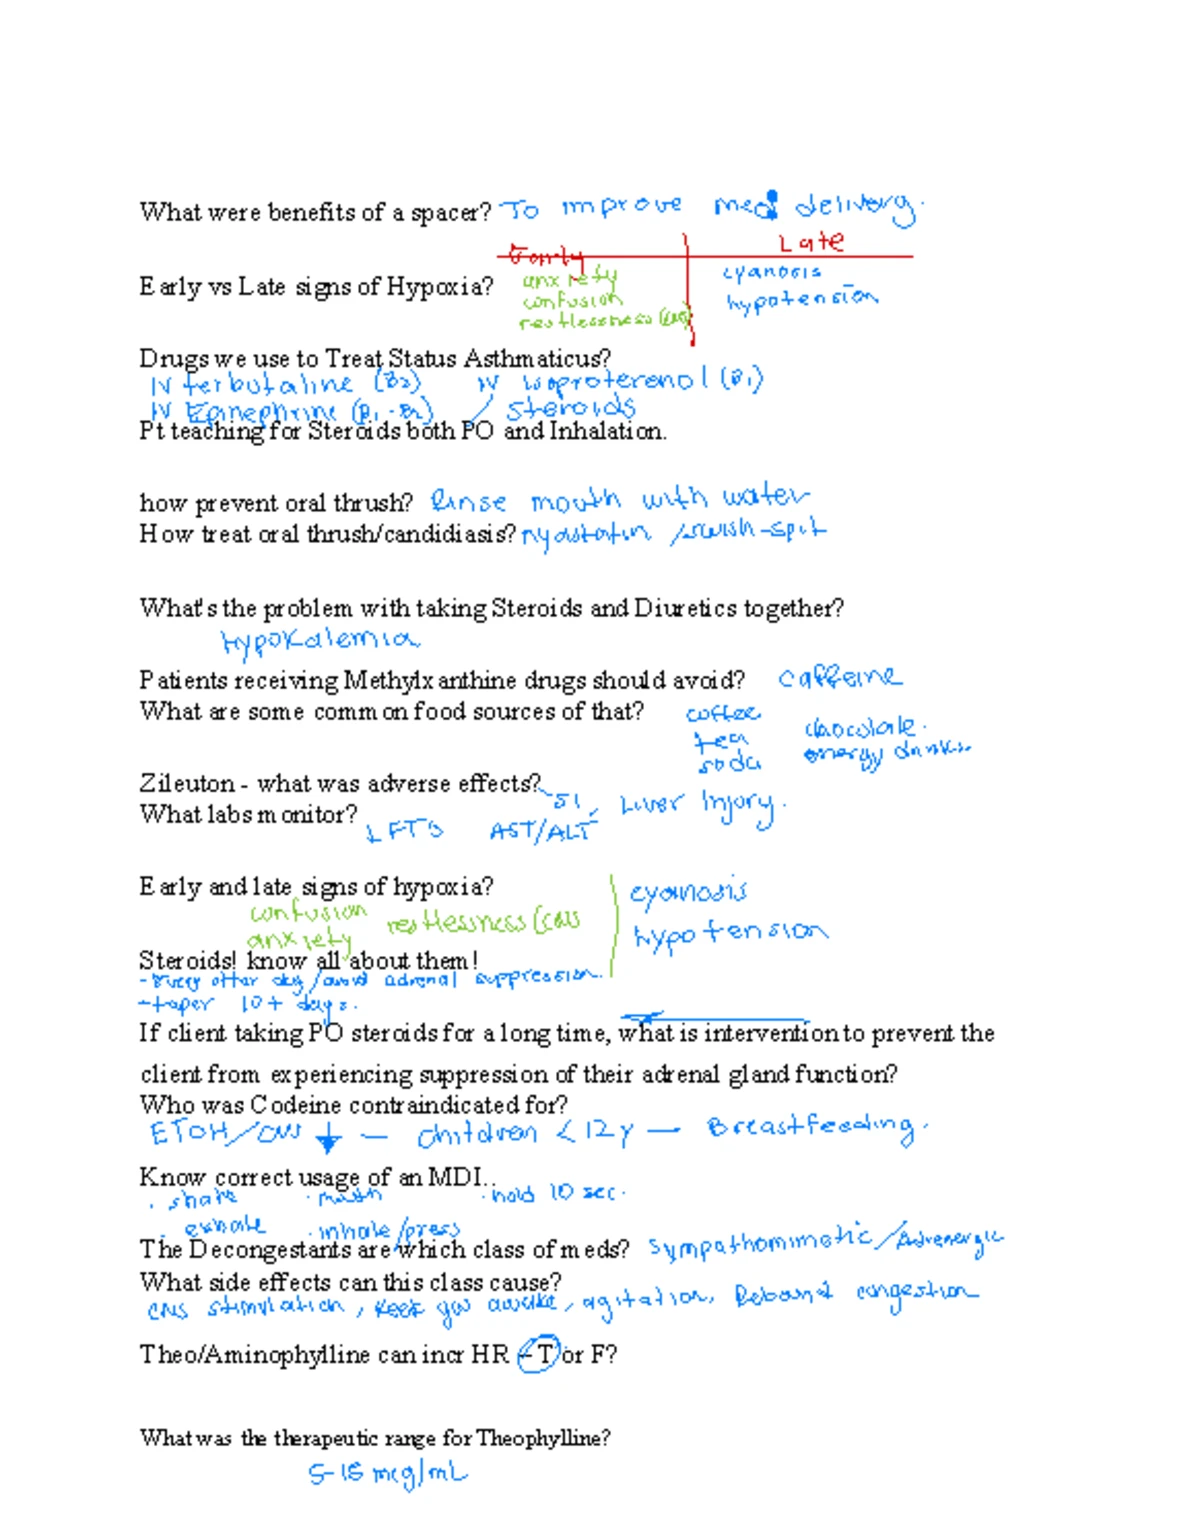 What were benefits of a spacer? To improve med delivery.
Early Late
Early vs Late signs of Hypoxia? anxiety cyanosis
confusion hypotension
restlessness (CNS)
Drugs we use to Treat Status Asthmaticus?
IV terbutaline (B2) IV isoproterenol (B1)
IV Epinephrine (B1-B2) / steroids
Pt teaching for Steroids both PO and Inhalation.
how prevent oral thrush? Rinse mouth with water
How treat oral thrush/candidiasis? nyastatin /swish-spit
What's the problem with taking Steroids and Diuretics together?
Hypokalemia
Patients receiving Methylxanthine drugs should avoid? caffeine
What are some common food sources of that? coffee chocolate.
tea energy drinks.
soda
Zileuton - what was adverse effects? Liver Injury.
What labs monitor? LFTs AST/ALT
Early and late signs of hypoxia? cyanosis
confusion restlessness (CNS
anxiety hypotension
Steroids! know all about them!
- Every other day/avoid adrenal suppression.
- taper 10+ days.
If client taking PO steroids for a long time, what is intervention to prevent the
client from experiencing suppression of their adrenal gland function?
Who was Codeine contraindicated for?
ETOH/CNS ↓ — children < 12y — Breastfeeding.
Know correct usage of an MDI..
· shake · mouth · hold 10 sec.
· exhale · inhale/press
The Decongestants are which class of meds? Sympathomimetic/Adrenergic
What side effects can this class cause?
CNS stimulation, keep you awake, agitation, Rebound congestion
Theo/Aminophylline can incr HR – T or F?
What was the therapeutic range for Theophylline?
5-15 mcg/mL